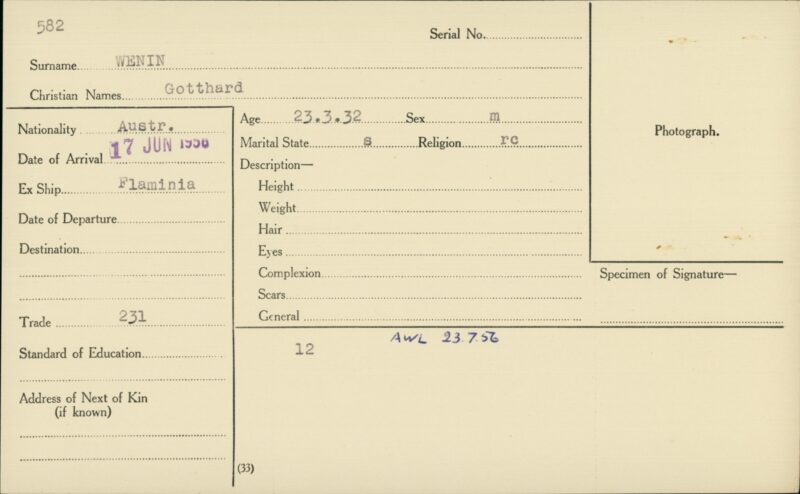 582
Serial No.
Surname WENIN
Christian Names Gotthard
Nationality Austr.
Date of Arrival 17 JUN 1956
Ex Ship Flaminia
Date of Departure
Destination
Trade 231
Standard of Education
Address of Next of Kin
(if known)
Age 23.3.32 Sex m
Marital State s Religion rc
Description—
Height
Weight
Hair
Eyes
Complexion
Scars
General
12 AWL 23.7.56
(33)
Photograph.
Specimen of Signature—